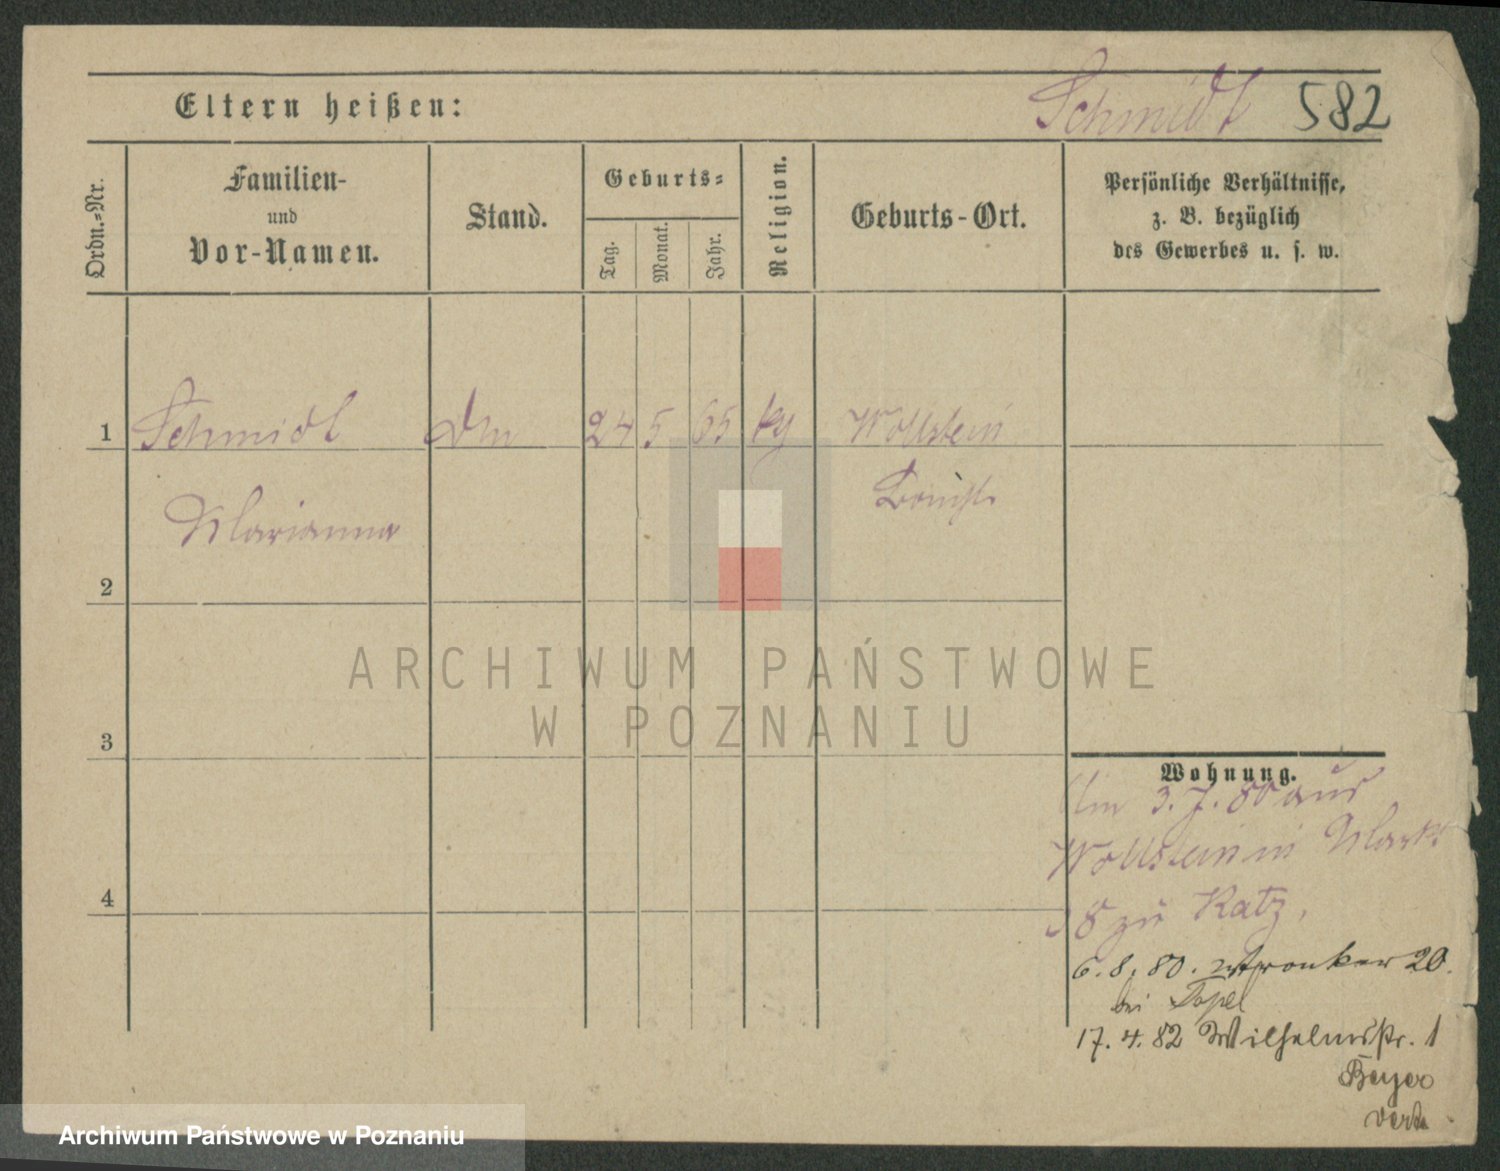 Eltern heißen:
Schmidt 582
Ordn.=Nr.
Familien-
und
Vor-Namen.
Stand.
Geburts=
Tag.
Monat.
Jahr.
Religion.
Geburts-Ort.
Persönliche Verhältnisse,
z. B. bezüglich
des Gewerbes u. s. w.
1 Schmidt 24 5 65 Wollstein
Marianna
2
3
4
ARCHIWUM PAŃSTWOWE
W POZNANIU
Wohnung.
3. 7. 80 aus
Wollstein in Markt
zu Katz,
6. 8. 80. Wronker 20.
bei
17. 4. 82 Wilhelmstr. 1
Beyer
Archiwum Państwowe w Poznaniu